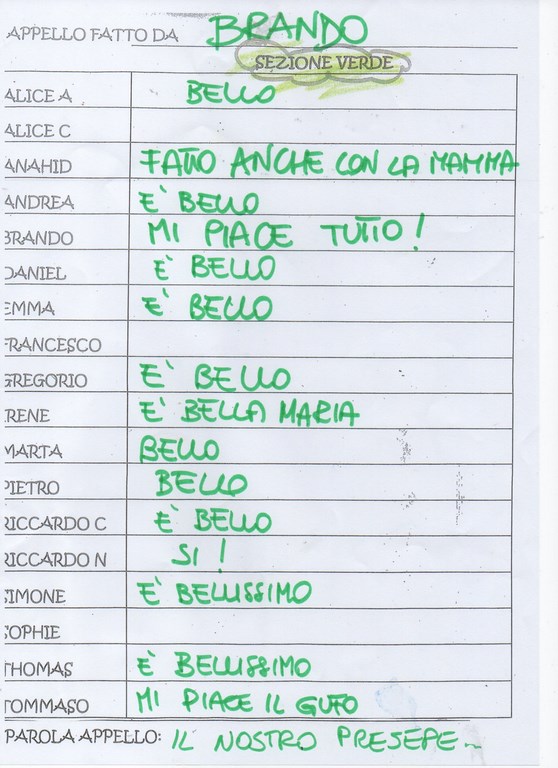 APPELLO FATTO DA BRANDO
SEZIONE VERDE
ALICE A BELLO
ALICE C
ANAHID FATTO ANCHE CON LA MAMMA
ANDREA E' BELLO
BRANDO MI PIACE TUTTO!
DANIEL E' BELLO
EMMA E' BELLO
FRANCESCO
GREGORIO E' BELLO
IRENE E' BELLA MARIA
MARTA BELLO
PIETRO BELLO
RICCARDO C E' BELLO
RICCARDO N SI!
SIMONE E' BELLISSIMO
SOPHIE
THOMAS E' BELLISSIMO
TOMMASO MI PIACE IL GUFO
PAROLA APPELLO: IL NOSTRO PRESEPE...